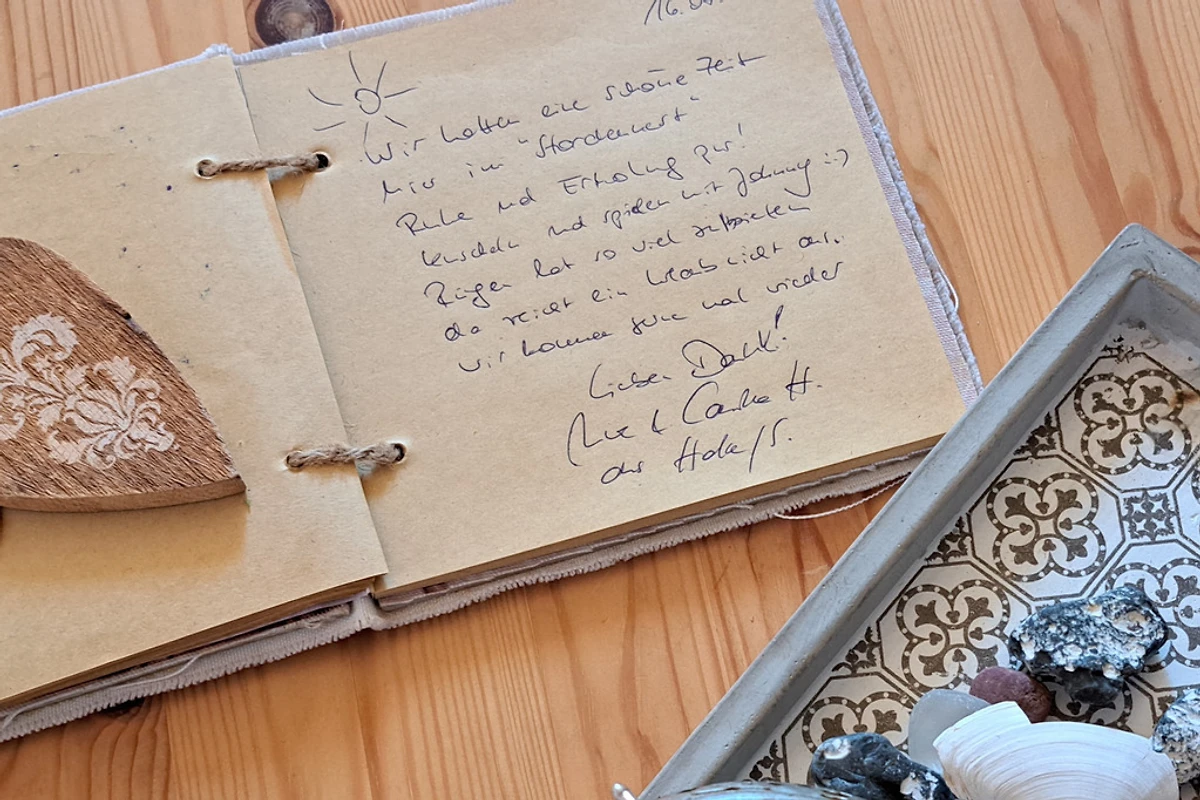 16.
Wir hatten eine schöne Zeit
hier im "Storchennest"
Ruhe und Erholung pur!
kuscheln und spielen mit Johnny :-)
Rügen hat so viel zu bieten
da reicht ein Urlaub nicht aus.
wir kommen gerne mal wieder
Lieben Dank!
& H.
aus Halle/S.